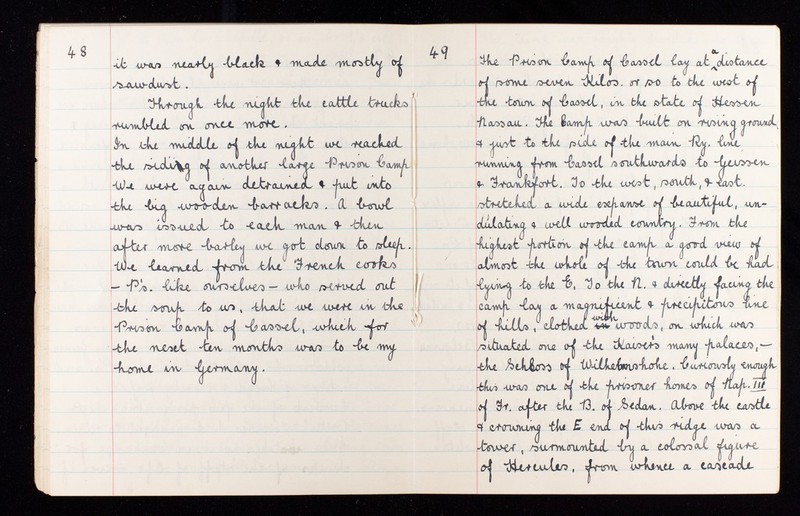 48
it was nearly black & made mostly of
sawdust.
Through the night the cattle trucks
rumbled on once more.
In the middle of the night we reached
the siding of another large Prison Camp
We were again detrained & put into
the big wooden barracks. A bowl
was issued to each man & then
after more barley we got down to sleep.
We learned from the French cooks
- P's. like ourselves - who served out
the soup to us, that we were in the
Prison Camp of Cassel, which for
the next ten months was to be my
home in Germany.
49
The Prison Camp of Cassel lay at a distance
of some seven Kilos. or so to the west of
the town of Cassel, in the state of Hessen
Nassau. The Camp was built on rising ground,
& just to the side of the main Ry. line
running from Cassel southwards to Geissen
& Frankfort. To the west, south, & east.
stretched a wide expanse of beautiful, un-
dulating & well wooded country. From the
highest portion of the camp a good view of
almost the whole of the town could be had
lying to the E. To the N. & directly facing the
camp lay a magnificent & precipitous line
of hills, clothed with woods, on which was
situated one of the Kaisers many palaces, -
the Schloss of Wilhelmshohe. Curiously enough
this was one of the prisoner homes of Nap. III
of Fr. after the B. of Sedan. Above the castle
& crowning the E end of this ridge was a
tower, surmounted by a colossal figure
of Hercules, from whence a cascade